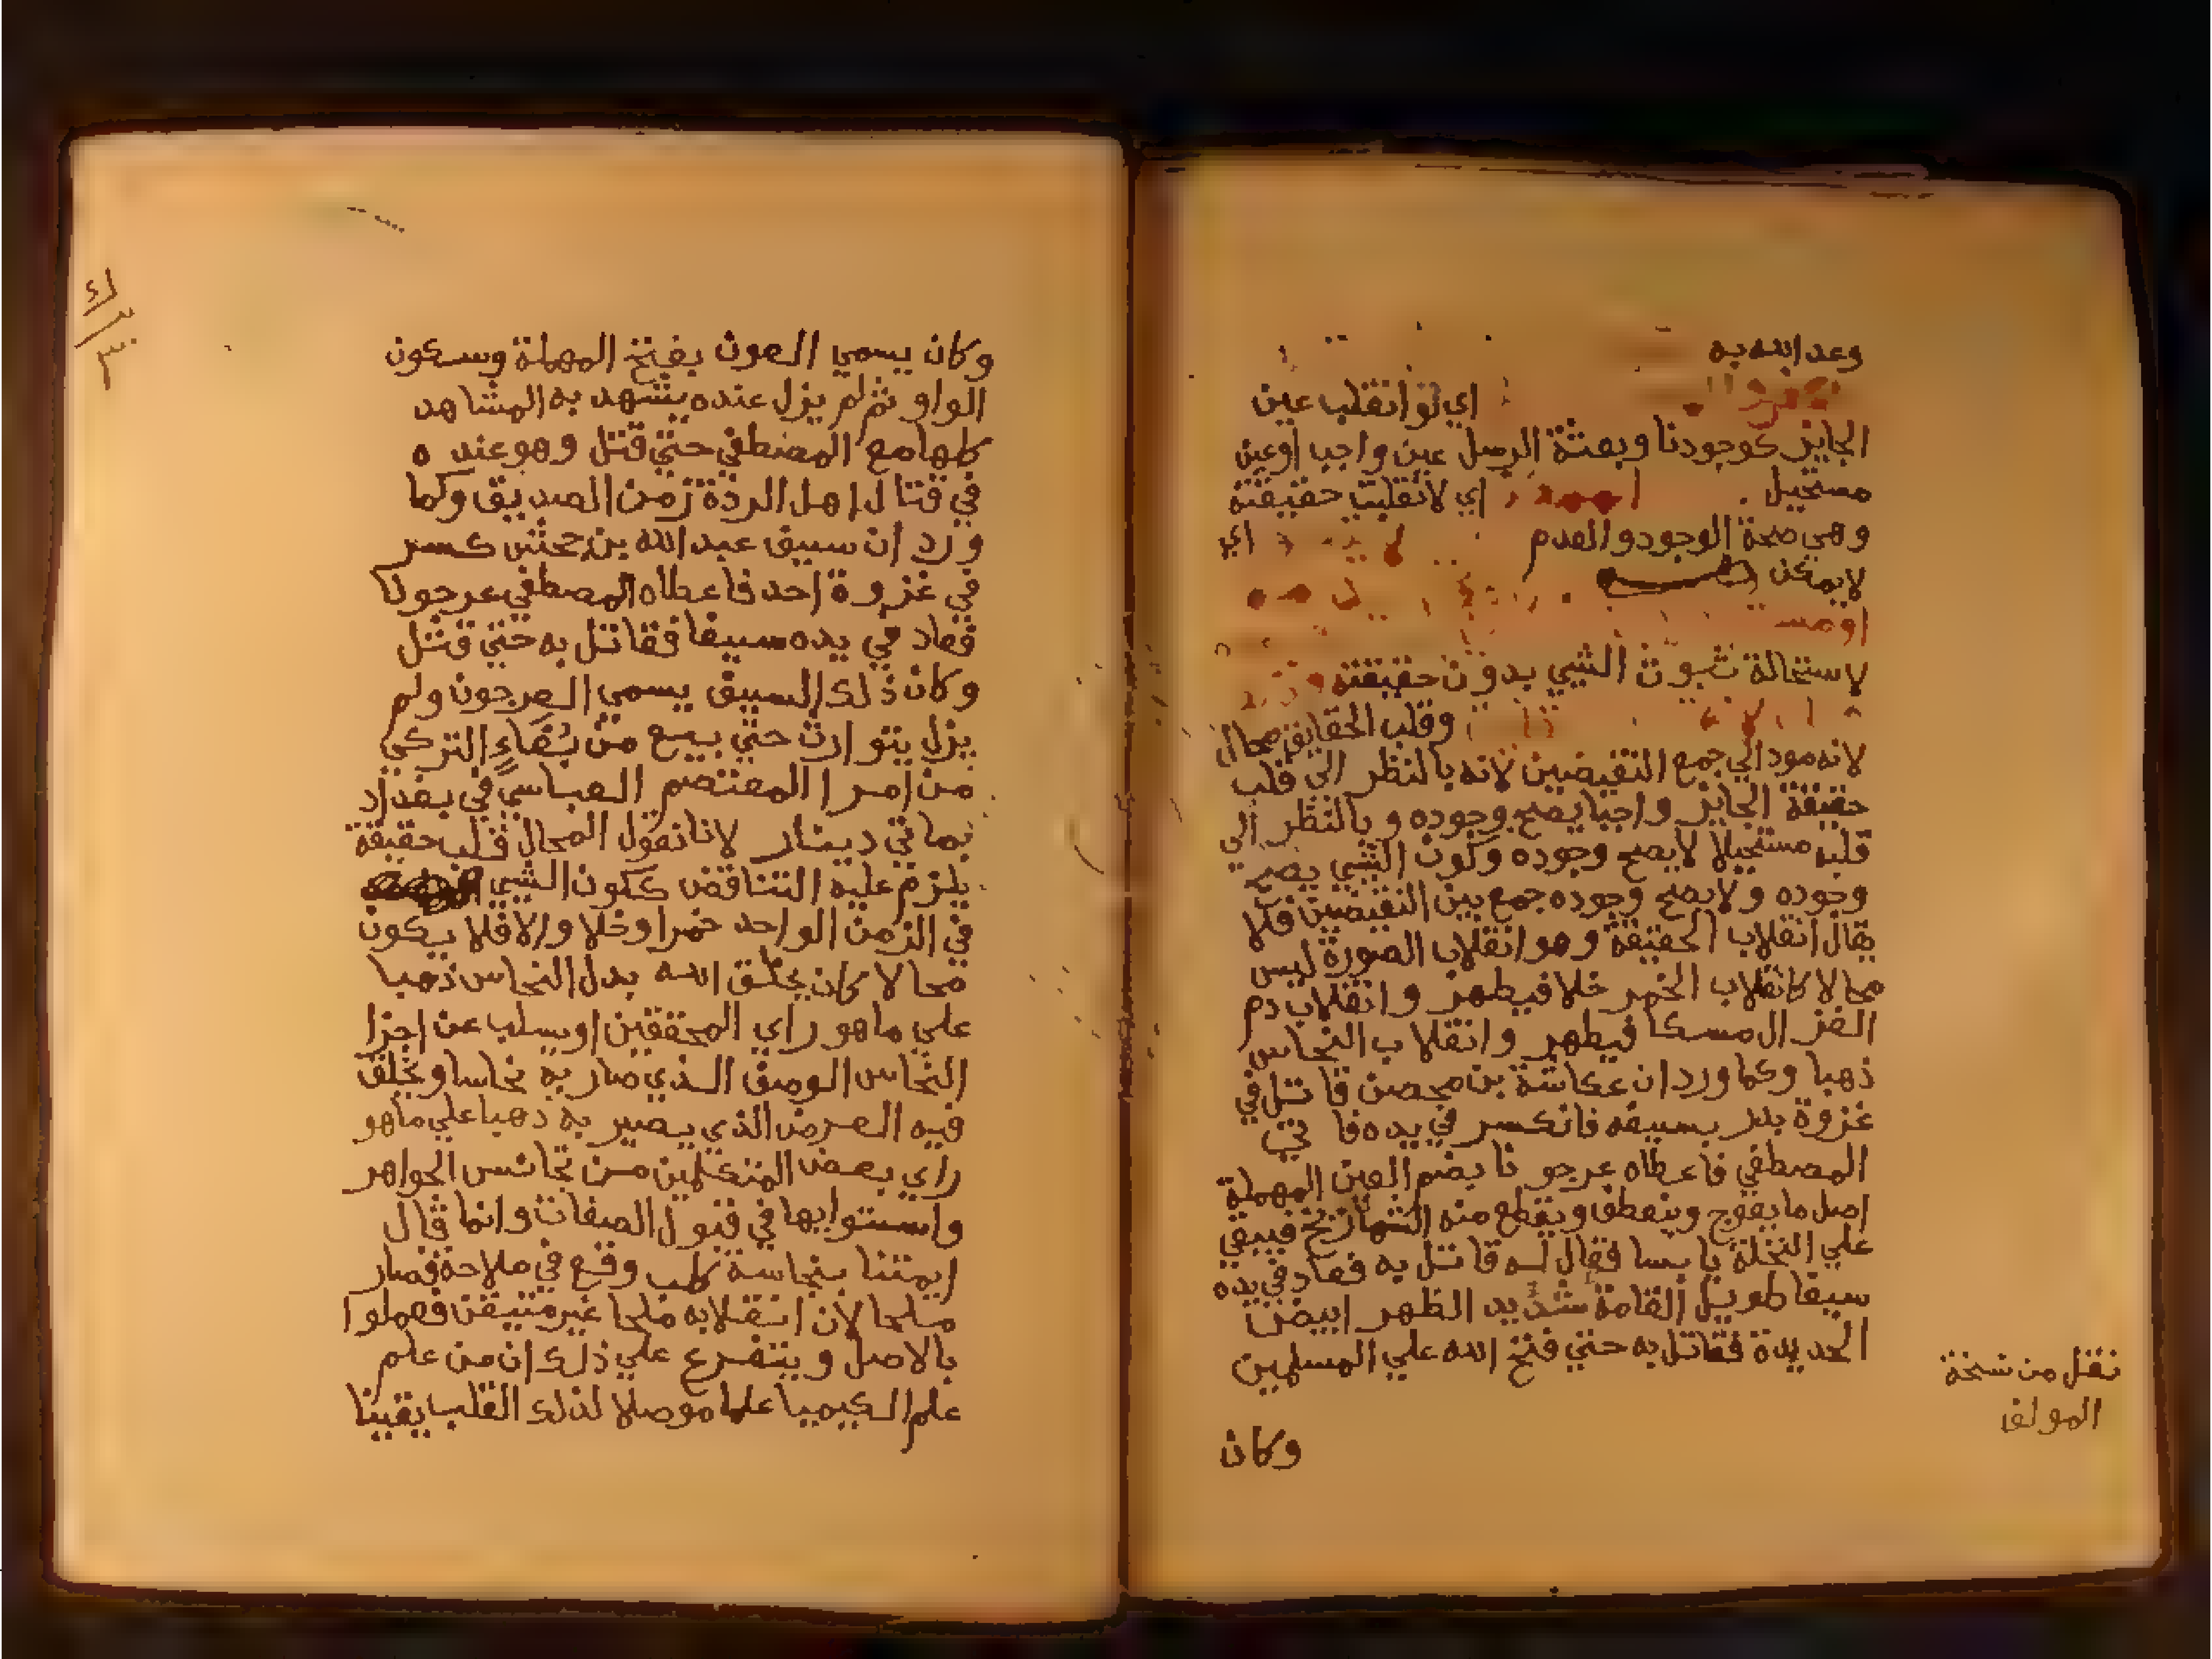 وعد الله به
اي لو انقلب عين
الجايز كوجودنا وبعثة الرسل عين واجب اوعين
مستحيل اي لانقلبت حقيقته
وهي صحة الوجود والعدم اي
لايمكن
اومس
لاستحالة ثبوت الشي بدون حقيقته
وقلب الحقايق محال
لانه مود الي جمع النقيضين لانه بالنظر الي قلب
حقيقة الجايز واجبا يصح وجوده وبالنظر الي
قلبه مستحيلا لايصح وجوده وكون الشي يصح
وجوده ولايصح وجوده جمع بين النقيضين فلا
يقال انقلاب الحقيقة وهو انقلاب الصورة ليس
محالا كانقلاب الخمر خلا فيطهر وانقلاب دم
الغزال مسكا فيطهر وانقلاب النحاس
ذهبا وكما ورد ان عكاشة بن محصن قاتل في
غزوة بدر بسيفه فانكسر في يده فا تي
المصطفي فاعطاه عرجونا بضم العين المهملة
اصل مايعوج وينعطف ويقطع منه الشماريخ فيبقي
علي النخلة يابسا فقال له قاتل به فعاد في يده
سيفا طويل القامة شديد الظهر ابيض
الحديدة فقاتل به حتي فتح الله علي المسلمين
نقل من نسخة
المولف
وكان
وكان يسمي العون بفتح المهملة وسكون
الواو ثم لم يزل عنده يشهد به المشاهد
كلها مع المصطفي حتي قتل وهو عنده
في قتال اهل الردة زمن الصديق وكما
ورد ان سيف عبد الله بن جحش كسر
في غزوة احد فاعطاه المصطفي عرجونا
فعاد في يده سيفا فقاتل به حتي قتل
وكان ذلك السيف يسمي العرجون ولم
يزل يتوارث حتي بيع من بُغَاءٍ التركي
من امرا المعتصم العباسي في بغداد
بماتي دينار لانا نقول المحال قلب حقيقة
يلزم عليه التناقض ككون الشي
في الزمن الواحد خمرا وخلا والا فلا يكون
محالا كان يخلق الله بدل النحاس ذهبا
علي ماهو راي المحققين اويسلب عن اجزا
النحاس الوصف الذي صار به نحاسا ويخلق
فيه العرض الذي يصير به ذهبا علي ماهو
راي بعض المتكلمين من تجانس الجواهر
واستوايها في قبول الصفات وانما قال
ايمتنا بنجاسة كلب وقع في ملاحة فصار
ملحا لان انقلابه ملحا غير متيقن فعملوا
بالاصل ويتفرع علي ذلك ان من علم
علم الكيميا علما موصلا لذلك القلب يقينا